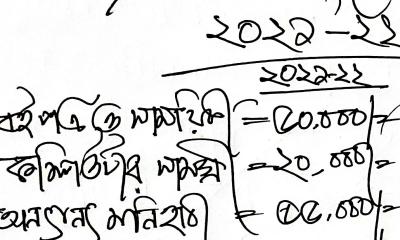 ২০২১-২২
২০২১-২২
বই পত্র ও সাময়িকী = ৫০,০০০/=
কম্পিউটার সামগ্রী = ২০,০০০/=
অন্যান্য মনিহারী = ১৫,০০০/=